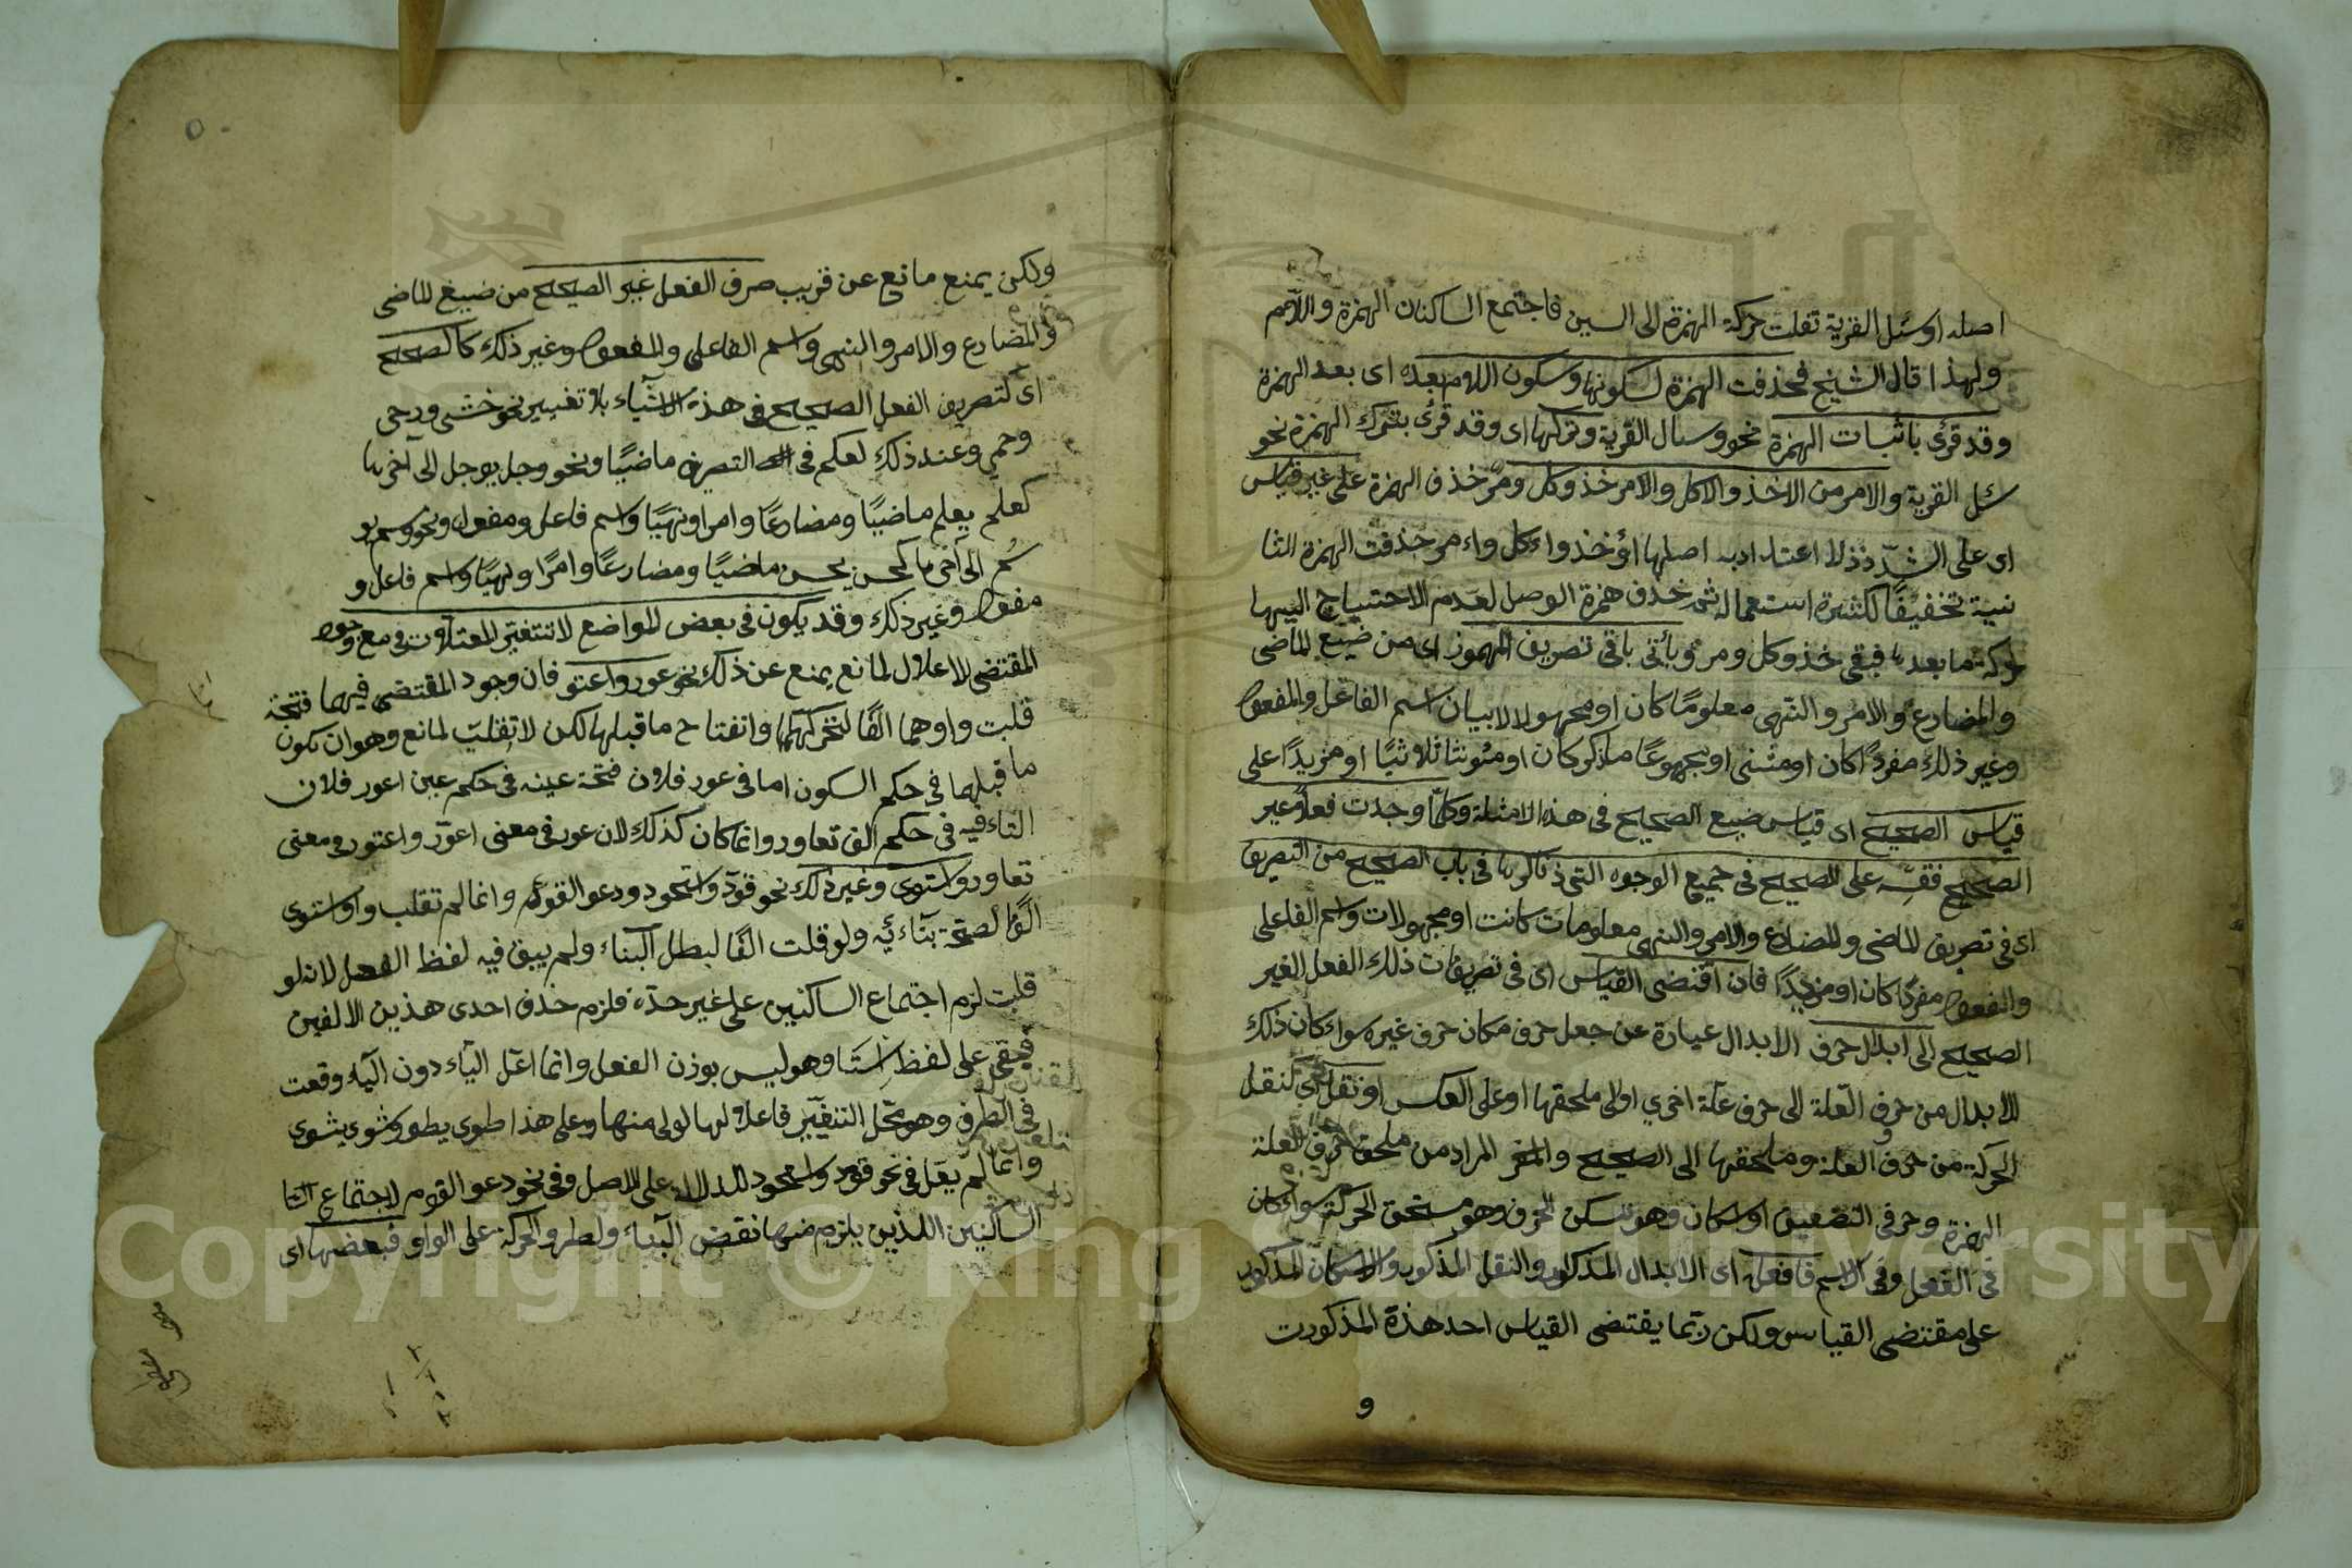 اصله اوسئل القرية نقلت حركة الهمزة الى السين فاجتمع الساكنان الهمزة واللام
ولهذا قال الشيخ فحذفت الهمزة لسكونها وسكون اللام بعده اى بعد الهمزة
وقد قرئ باثبات الهمزة نحو وسال القرية وتركها اى وقد قرئ بترك الهمزة نحو
سل القرية والامر من الاخذ والاكل والامر خذ وكل ومر حذف الهمزة على غير قياس
اى على الشذوذ لا اعتداد به اصلها اؤخذ واءكل واءمر حذفت الهمزة الثا
نية تخفيفا لكثرة استعماله ثم حذف همزة الوصل لعدم الاحتياج اليها
لحركة ما بعدها فبقى خذ وكل ومر وياتى باقى تصريف المهموز اى من صيغ الماضى
والمضارع والامر والنهى معلوما كان او مجهولا لابيان اسم الفاعل والمفعول
وغير ذلك مفردا كان او مثنى او مجموعا مذكر كان او مؤنثا ثلاثيا او مزيدا على
قياس الصحيح اى قياس صيغ الصحيح فى هذه الامثلة وكلما وجدت فعلا غير
الصحيح فقسه على الصحيح فى جميع الوجوه التى ذكرها فى باب الصحيح من التصريف
اى فى تصريف الماضى والمضارع والامر والنهى معلومات كانت او مجهولات واسم الفاعل
والمفعول مفردا كان او مزيدا فان اقتضى القياس اى فى تصريفات ذلك الفعل الغير
الصحيح الى ابدال حرف الابدال عبارة عن جعل حرف مكان حرف غيره سواء كان ذلك
الابدال من حرف العلة الى حرف علة اخرى او الى ملحقها او على العكس او نقل اى لنقل
الحركة من حرف العلة وملحقها الى الصحيح والمراد من ملحق حرف العلة
الهمزة وحرفى التضعيف او اسكان وهو تسكين الحرف وهو مستحق الحركة سواء كان
فى الفعل وفى الاسم فافعل اى الابدال المذكور والنقل المذكور والاسكان المذكور
على مقتضى القياس ولكن ربما يقتضى القياس احد هذة المذكورت
و
ولكن يمنع مانع عن قريب صرف الفعل غير الصحيح من صيغ الماضى
والمضارع والامر والنهى واسم الفاعل والمفعول وغير ذلك كالصحيح
اى كتصريف الفعل الصحيح فى هذه الاشياء بلا تغيير نحو خشى ورحى
وحمى وعند ذلك لعكم فى التصريف ماضيا ونحو وجل يوجل الى آخرها
كعلم يعلم ماضيا ومضارعا وامرا ونهيا واسم فاعل ومفعول ونحو وسم يو
سم الى آخرها كحسن يحسن ماضيا ومضارعا وامرا ونهيا واسم فاعل و
مفعول وغير ذلك وقد يكون فى بعض المواضع لا تتغير المعتلات فى مع وجود
المقتضى للاعلال لمانع يمنع عن ذلك نحو عور واعتو فان وجود المقتضى فيهما فتحته
قلبت واوهما الفا لتحركهما وانفتاح ما قبلها لكن لا تقلب لمانع وهو ان يكون
ما قبلها فى حكم السكون اما فى عور فلان فتحة عينه فى حكم عين اعور فلان
التاء فيه فى حكم الف تعاور وانما كان كذلك لان عور فى معنى اعور واعتور فى معنى
تعاور واستوى وغير ذلك نحو قود واستحود ودعوا القوم وانما لم تقلب واو استوى
الفا لصحة بنائيه ولو قلت الفا لبطل البناء ولم يبق فيه لفظ الفعل لانه لو
قلبت لزم اجتماع الساكنين على غير حده فلزم حذف احدى هذين الالفين
فبقى على لفظ استا وهو ليس بوزن الفعل وانما اعل الياء دون الياء وقعت
فى الطرف وهو محل التغيير فاعلالها اولى منها وعلى هذا طوى يطوى وشوى يشوى
وانما لم يعل فى نحو قود واستحود للدلالة على الاصل وفى نحو دعوا القوم لاجتماع التا
الساكنين اللذين يلزم منها نقض البناء ولطرو الحركة على الواو فبعضها اى
Copyright © King Saud University